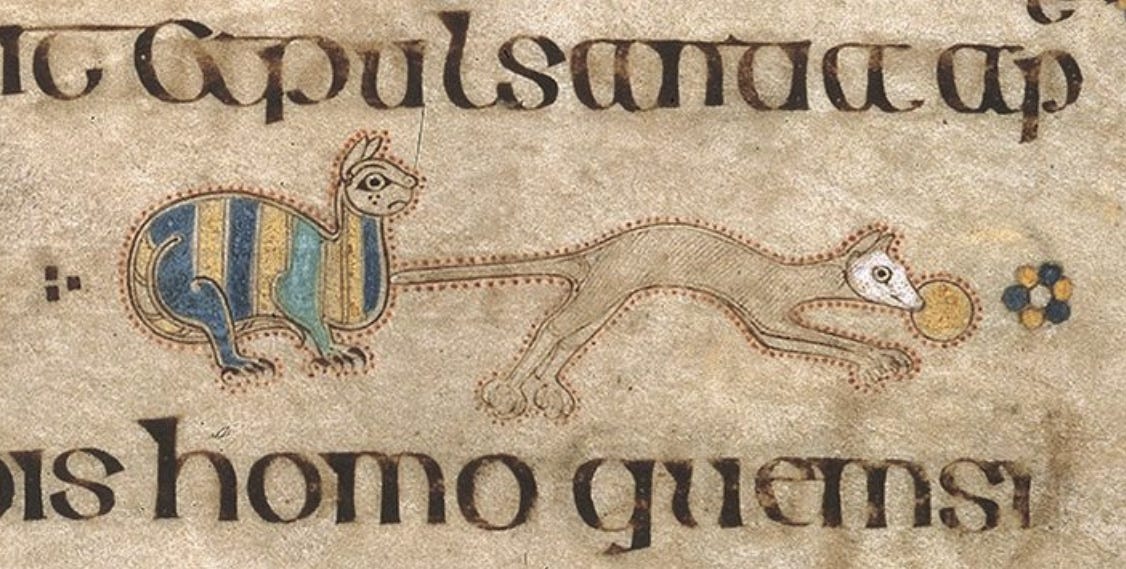 it & pulsanti ap
bis homo quem si